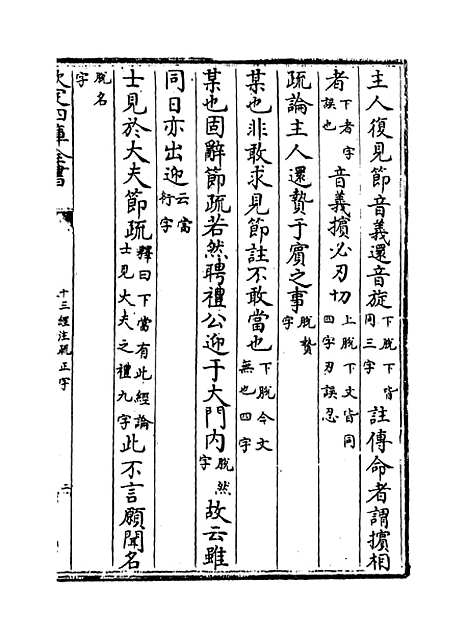 主人復見節音義還音旋下脱下皆同三字註傳命者謂擯相
者下者字誤也音義擯必刃切上脱下文皆同四字刃誤忍
疏論主人還贄于賓之事脱贄字
某也非敢求見節註不敢當也下脱今文無也四字
某也固辭節疏若然聘禮公迎于大門内脱然字故云雖
同日亦出迎云當衍字
士見於大夫節疏釋曰下當有此經論士見大夫之禮九字此不言願聞名
脱名字
欽定四庫全書
十三經注疏正字
二